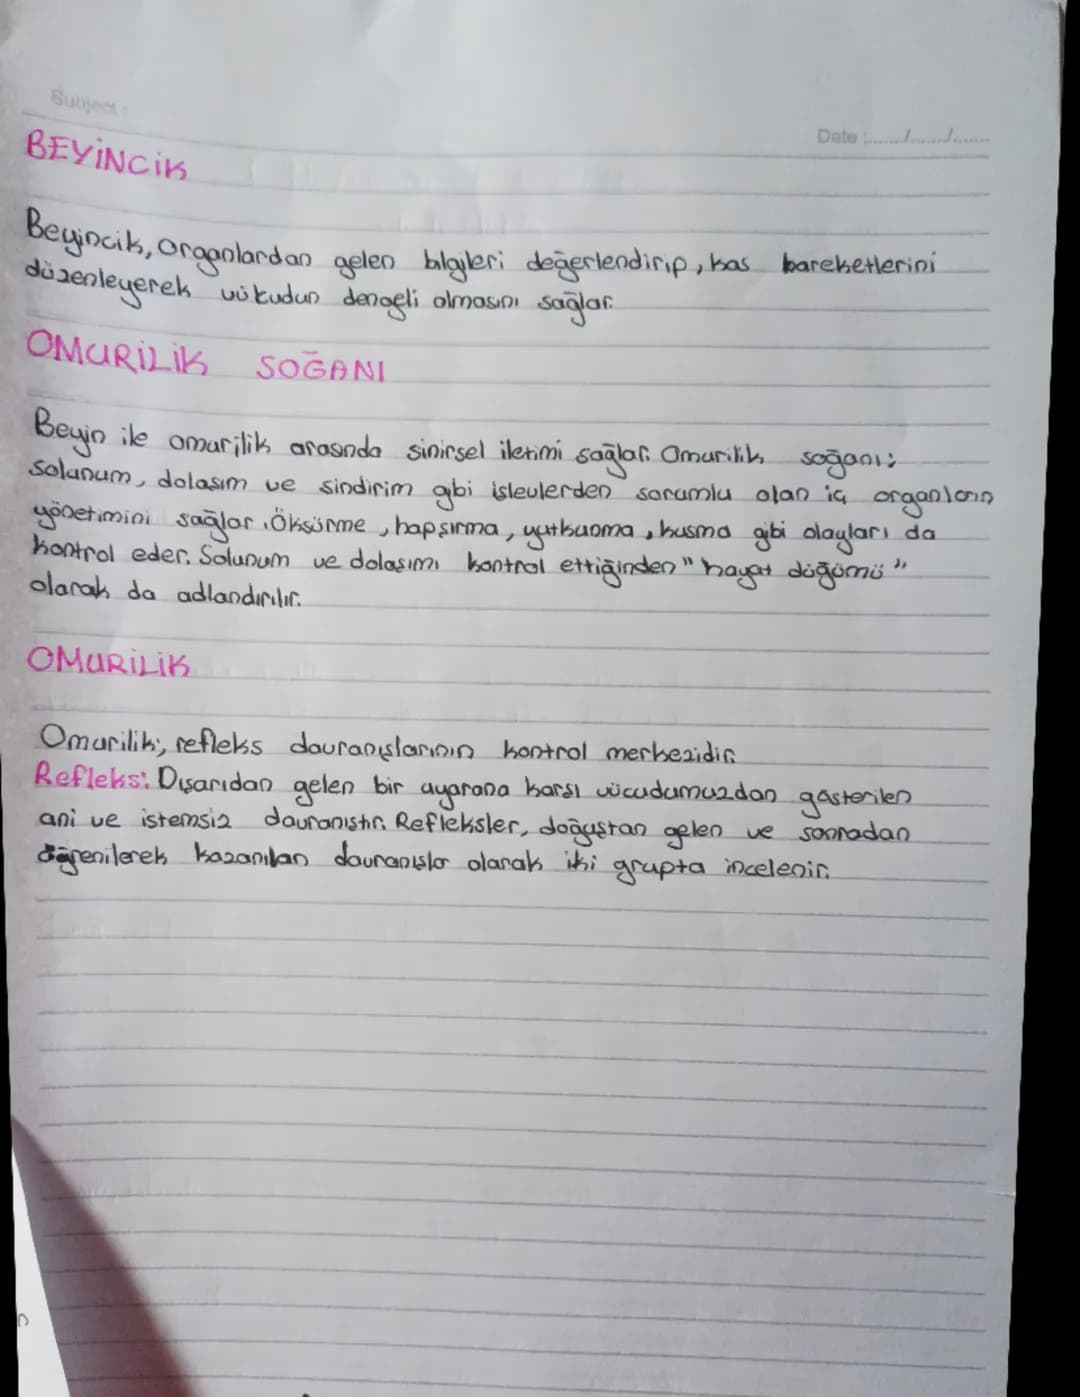 Subject :
Date :......./......./.......
BEYİNCİK
Beyincik, organlardan gelen blgileri değerlendirip, kas hareketlerini
düzenleyerek vücudun dengeli olmasını sağlar.
OMURİLİK SOĞANI
Beyin ile omurilik arasında sinirsel iletimi sağlar. Omurilik soğanı;
solunum, dolaşım ve sindirim gibi işlevlerden sorumlu olan iç organların
yönetimini sağlar. Öksürme, hapşırma, yutkunma, kusma gibi olayları da
kontrol eder. Solunum ve dolaşımı kontrol ettiğinden "hayat düğümü"
olarak da adlandırılır.
OMURİLİK
Omurilik; refleks davranışlarının kontrol merkezidir.
Refleks: Dışarıdan gelen bir uyarana karşı vücudumuzdan gösterilen
ani ve istemsiz davranıştır. Refleksler, doğuştan gelen ve sonradan
öğrenilerek kazanılan davranışlar olarak iki grupta incelenir.